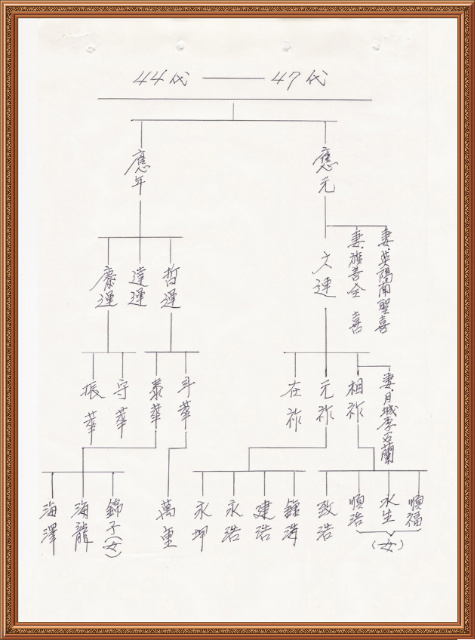 44代 — 47代
應年
應元
慶運
達運
哲運
文運
妻 善全 喜
妻 英陽南聖喜
振華
守華
泰華
斗華
在祚
元祚
相祚
妻月城李名蘭
海澤
海龍
錦子(女)
萬重
永坤
永浩
建浩
鍾浩
致浩
順浩
水生
順福
(女)